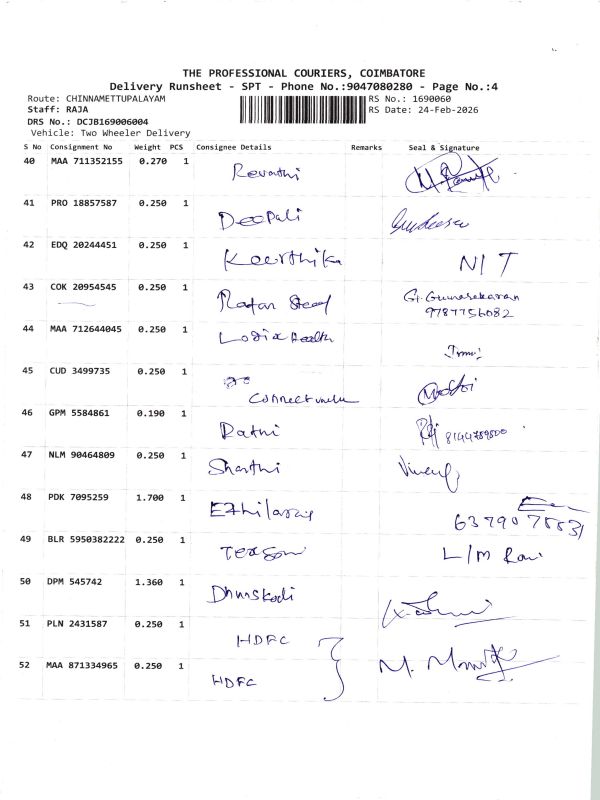 THE PROFESSIONAL COURIERS, COIMBATORE
Delivery Runsheet - SPT - Phone No.:9047080280 - Page No.:4
Route: CHINNAMETTUPALAYAM RS No.: 1690060
Staff: RAJA RS Date: 24-Feb-2026
DRS No.: DCJB169006004
Vehicle: Two Wheeler Delivery
S No Consignment No Weight PCS Consignee Details Remarks Seal & Signature
40 MAA 711352155 0.270 1 Revathi
41 PRO 18857587 0.250 1 Deepali
42 EDQ 20244451 0.250 1 Keerthika N/T
43 COK 20954545 0.250 1 Ratan Steel G. Gunasekaran
9787756082
44 MAA 712644045 0.250 1 Logix Health
45 CUD 3499735 0.250 1
Connect
46 GPM 5584861 0.190 1 Rathi 8144789500
47 NLM 90464809 0.250 1 Sharthi
48 PDK 7095259 1.700 1 Ezhilarasi
49 BLR 5950382222 0.250 1 L/M Ravi
50 DPM 545742 1.360 1 Dhanskodi
51 PLN 2431587 0.250 1 HDFC
52 MAA 871334965 0.250 1 HDFC